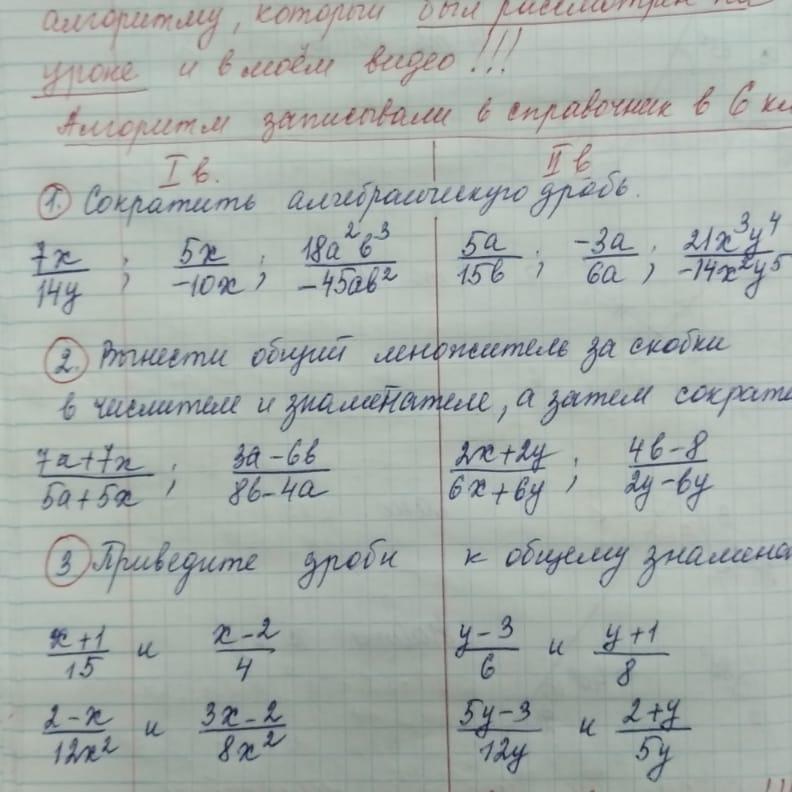 алгоритму, который был рассмотрен на
уроке и в моём видео!!!
Алгоритм записывали в справочник в 6 кл
I в. II в
1. Сократить алгебраическую дробь.
7x/14y ; 5x/-10x ; 18a²b³/-45ab² 5a/15b ; -3a/6a ; 21x³y⁴/-14x²y⁵
2. Вынести общий множитель за скобки
в числителе и знаменателе, а затем сократи
7a+7x/5a+5x ; 3a-6b/8b-4a 2x+2y/6x+6y ; 4b-8/2y-by
3 Приведите дроби к общему знамена
x+1/15 и x-2/4 y-3/6 и y+1/8
2-x/12x² и 3x-2/8x² 5y-3/12y и 2+y/5y